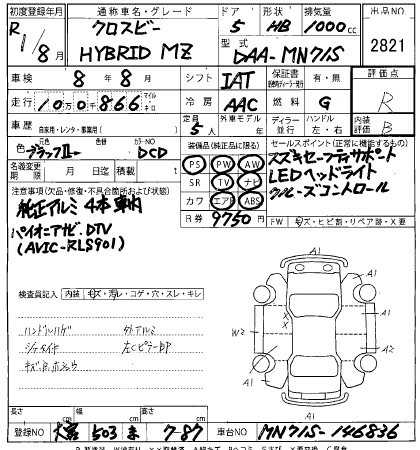 初度登録年月 通称車名・グレード ドア 形状 排気量 出品NO
R1/8月 クロスビー HYBRID MZ 5 HB 1000cc 2821
型式 DAA-MN71S
評価点 R
車検 8年8月 シフト IAT 保証書 有・無
走行 10万0千866 マイル キロ 冷房 AAC 燃料 G 内装評価 B
車歴 自家用・レンタ・事業用( ) 定員 5人 外車モデル 年 ディーラー 並行 ハンドル 左・右
色 ブラックII 色替 カラーNO DCD
名義変更期限 月 日 積載 t
装備品(純正品に限る)
PS PW AW
SR TV ナビ
カワ エアB ABS
R券 9750円
セールスポイント(正常に機能するもの)
スズキセーフティサポート
LEDヘッドライト
クルーズコントロール
FW キズ・ヒビ割・リペア跡・X要
注意事項(欠品・修復・不具合箇所および状態)
純正アルミ4本車内
パイオニアナビ.DTV
(AVIC-RLS901)
検査員記入 内装 キズ・汚レ・コゲ・穴・スレ・キレ
ハンドルハゲ 外アルミ
左Cピラー
A1
A1 A1
W2 X X A2
A1 A1
長さ cm 幅 cm 高さ cm
登録NO 503 ま 7-87 車台NO MN71S-146836